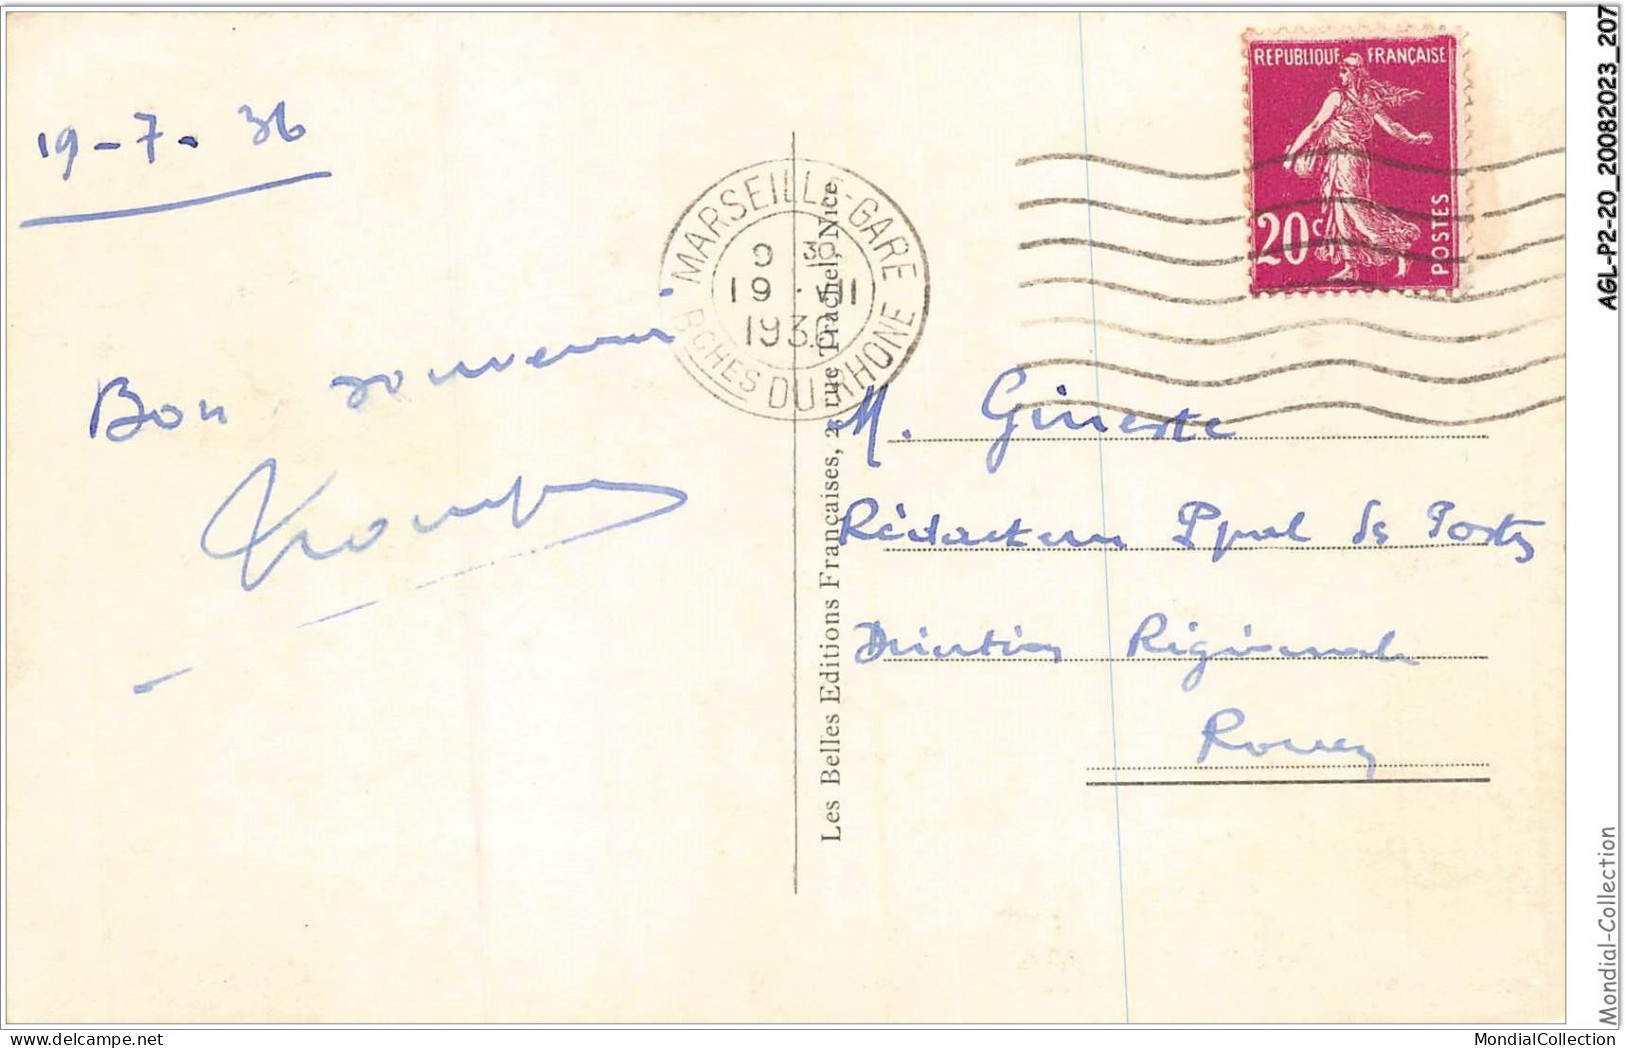 19-7-36
Bon souvenir
MARSEILLE-GARE
19 VII
1936
BCHES DU RHONE
REPUBLIQUE FRANÇAISE
20c
POSTES
M. Gineste
Rédacteur Ppal des Postes
Direction Régionale
Rouen
Les Belles Editions Françaises, 2, rue Trachel, Nice
AGL-P2-20_20082023_207
Mondial-Collection
MondialCollection